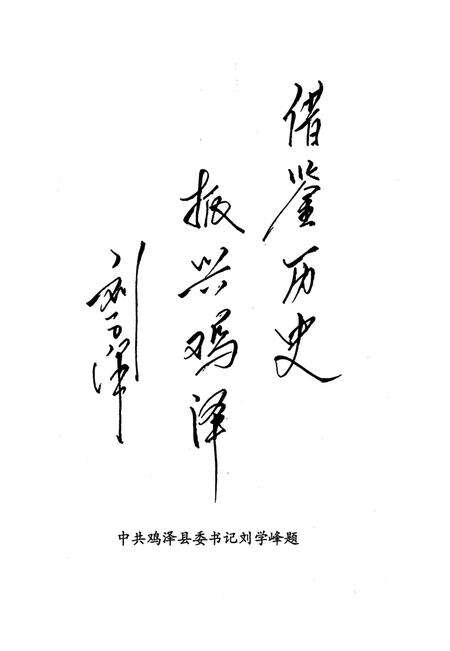 借鉴历史
振兴鸡泽
中共鸡泽县委书记刘学峰题